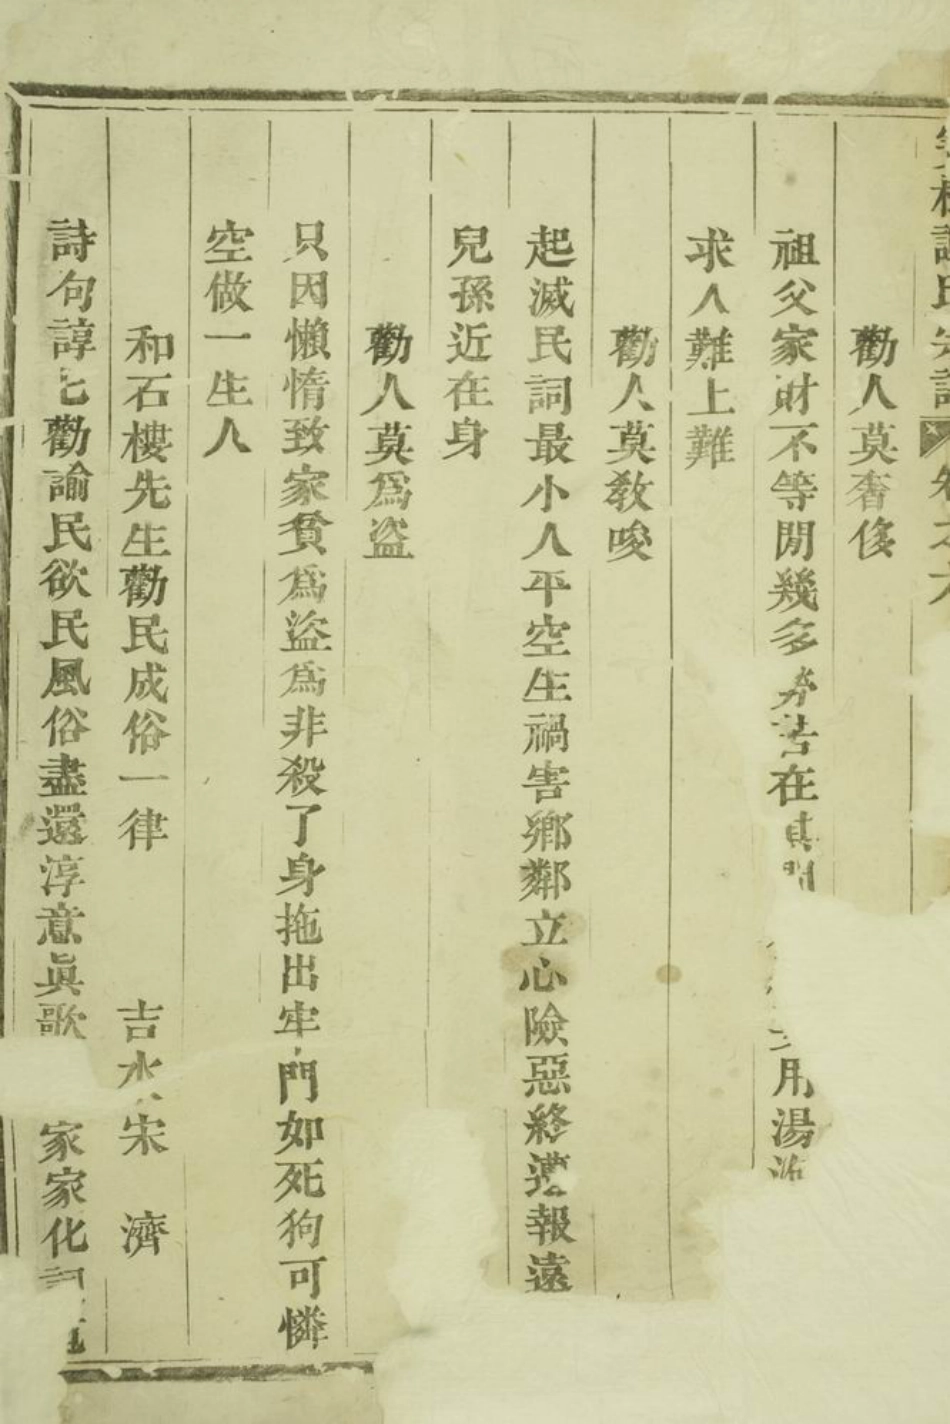 氏
勸人莫奢侈
祖父家財不等閒幾多辛苦在其間用湯
求人難上難
勸人莫教唆
起滅民詞最小人平空生禍害鄉鄰立心險惡終遭報遠
兒孫近在身
勸人莫爲盜
只因懶惰致家貧爲盜爲非殺了身拖出牢門如死狗可憐
空做一生人
和石樓先生勸民成俗一律　吉水宋　濟
詩句諄諄勸諭民欲民風俗盡還淳意眞歌家家化